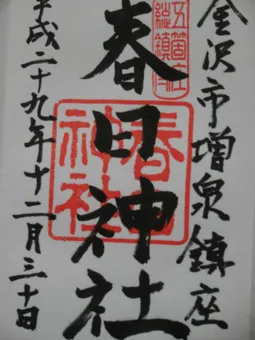 金沢市増泉鎮座
五箇庄
総鎮守
春日神社
春日
神社
平成二十九年十二月三十日